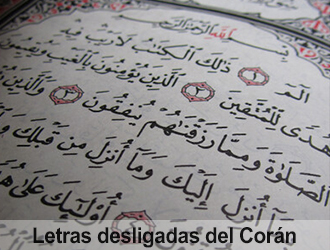 بِسْمِ اللَّهِ الرَّحْمَٰنِ الرَّحِيمِ
الٓمٓ ١ ذَٰلِكَ الْكِتَٰبُ لَا رَيْبَ فِيهِ
هُدًى لِلْمُتَّقِينَ ٢ الَّذِينَ يُؤْمِنُونَ بِالْغَيْبِ وَيُقِيمُونَ
الصَّلَوٰةَ وَمِمَّا رَزَقْنَٰهُمْ يُنْفِقُونَ ٣ وَالَّذِينَ
أُنْزِلَ إِلَيْكَ وَمَا أُنْزِلَ مِنْ قَبْلِكَ
أُولَٰئِكَ عَلَىٰ هُدًى
Letras desligadas del Corán